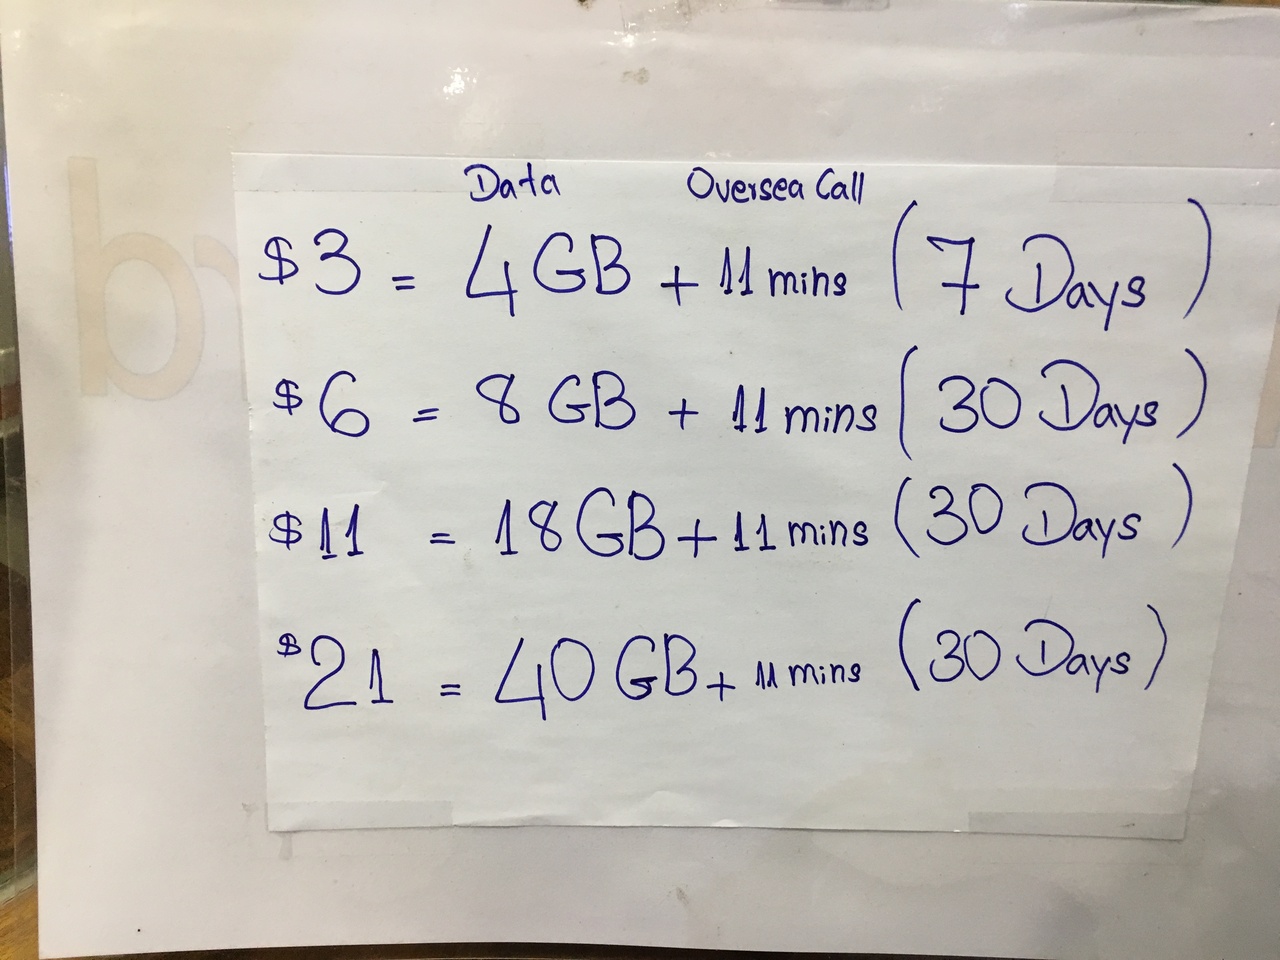 Data Oversea Call
$3 = 4GB + 11 mins (7 Days)
$6 = 8 GB + 11 mins (30 Days)
$11 = 18GB + 11 mins (30 Days)
$21 = 40GB + 11 mins (30 Days)